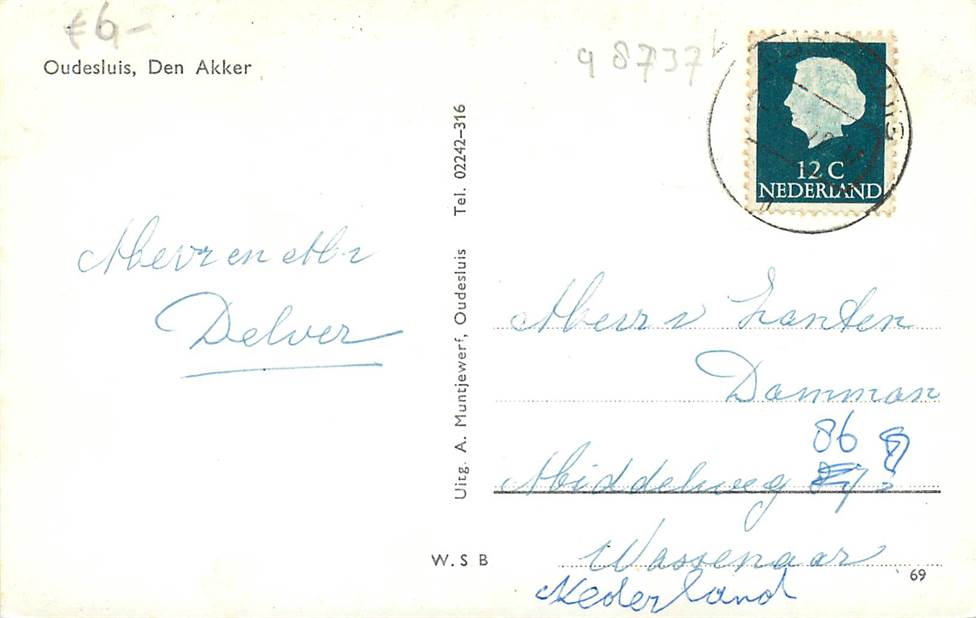 €6,-
Oudesluis, Den Akker
98737
12 C
NEDERLAND
Tel. 02242-316
Uitg. A. Muntjewerf, Oudesluis
Mevr en Mr
Delver
Mevr v Zanten
Damman
86
Middelweg
Wassenaar
Nederland
W. S B
69